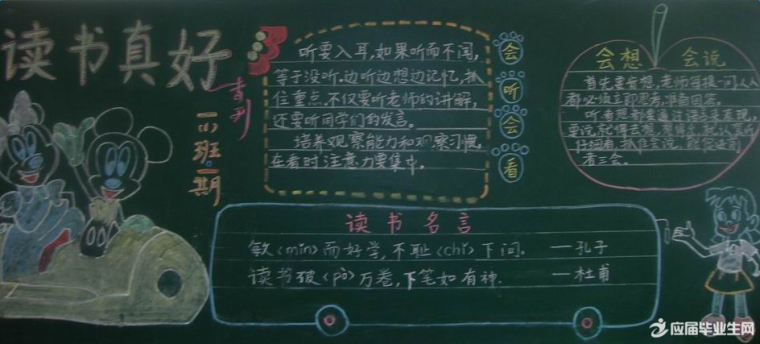 读书真好
专刊
一小班一期
听要入耳,如果听而不闻,
等于没听。边听边想边记忆,抓
住重点,不仅要听老师的讲解,
还要听同学们的发言。
培养观察能力和观察习惯,
在看时注意力要集中。
会
听
会
看
会想 会说
首先要会想,老师每提一问,人人
都必须立即思考,准备回答。
听看想都要通过语言来表现,
读书名言
敏<mǐn>而好学,不耻<chǐ>下问。 —孔子
读书破<pò>万卷,下笔如有神。 —杜甫
应届毕业生网